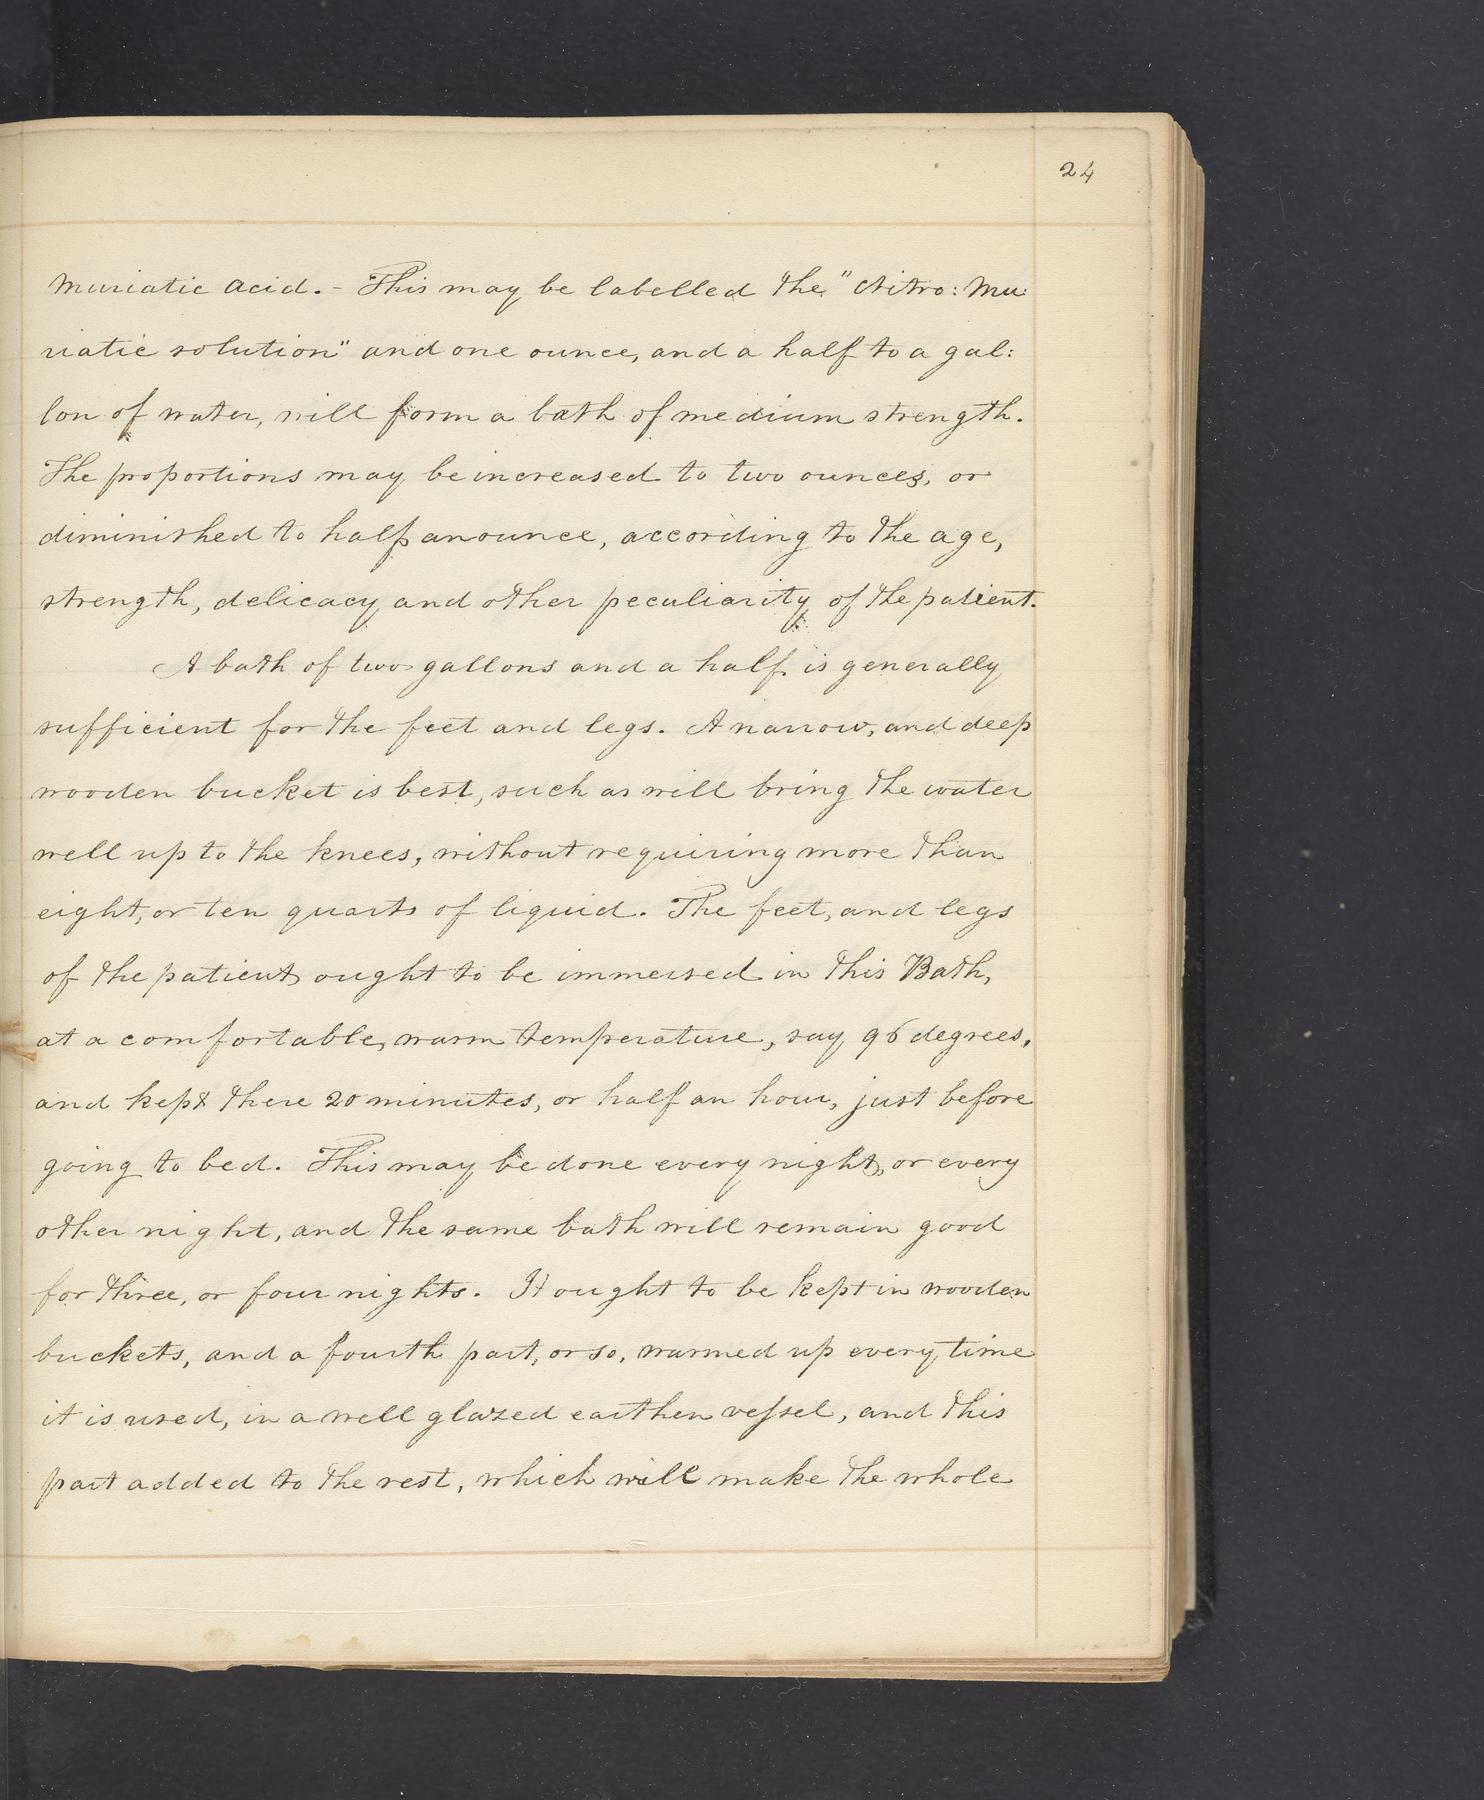 24
Muriatic Acid. - This may be labelled the "Nitro: Mu:
riatic solution" and one ounce, and a half to a gal:
lon of water, will form a bath of medium strength.
The proportions may be increased to two ounces, or
diminished to half an ounce, according to the age,
strength, delicacy and other peculiarity of the patient.
A bath of two gallons and a half is generally
sufficient for the feet and legs. A narrow, and deep
wooden bucket is best, such as will bring the water
well up to the knees, without requiring more than
eight, or ten quarts of liquid. The feet, and legs
of the patient ought to be immersed in this Bath,
at a comfortable, warm temperature, say 96 degrees,
and kept there 20 minutes, or half an hour, just before
going to bed. This may be done every night, or every
other night, and the same bath will remain good
for three, or four nights. It ought to be kept in wooden
buckets, and a fourth part, or so, warmed up every time
it is used, in a well glazed earthen veſsel, and this
part added to the rest, which will make the whole